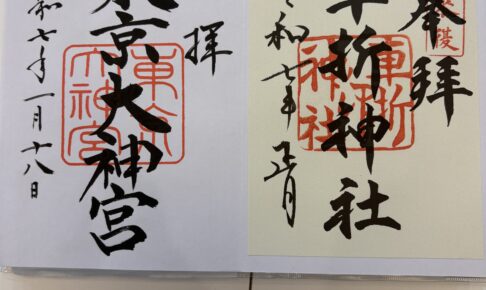 奉拝
車折神社
車折神社
令和七年正月
拝
東京大神宮
東京大神宮
和七年一月十八日